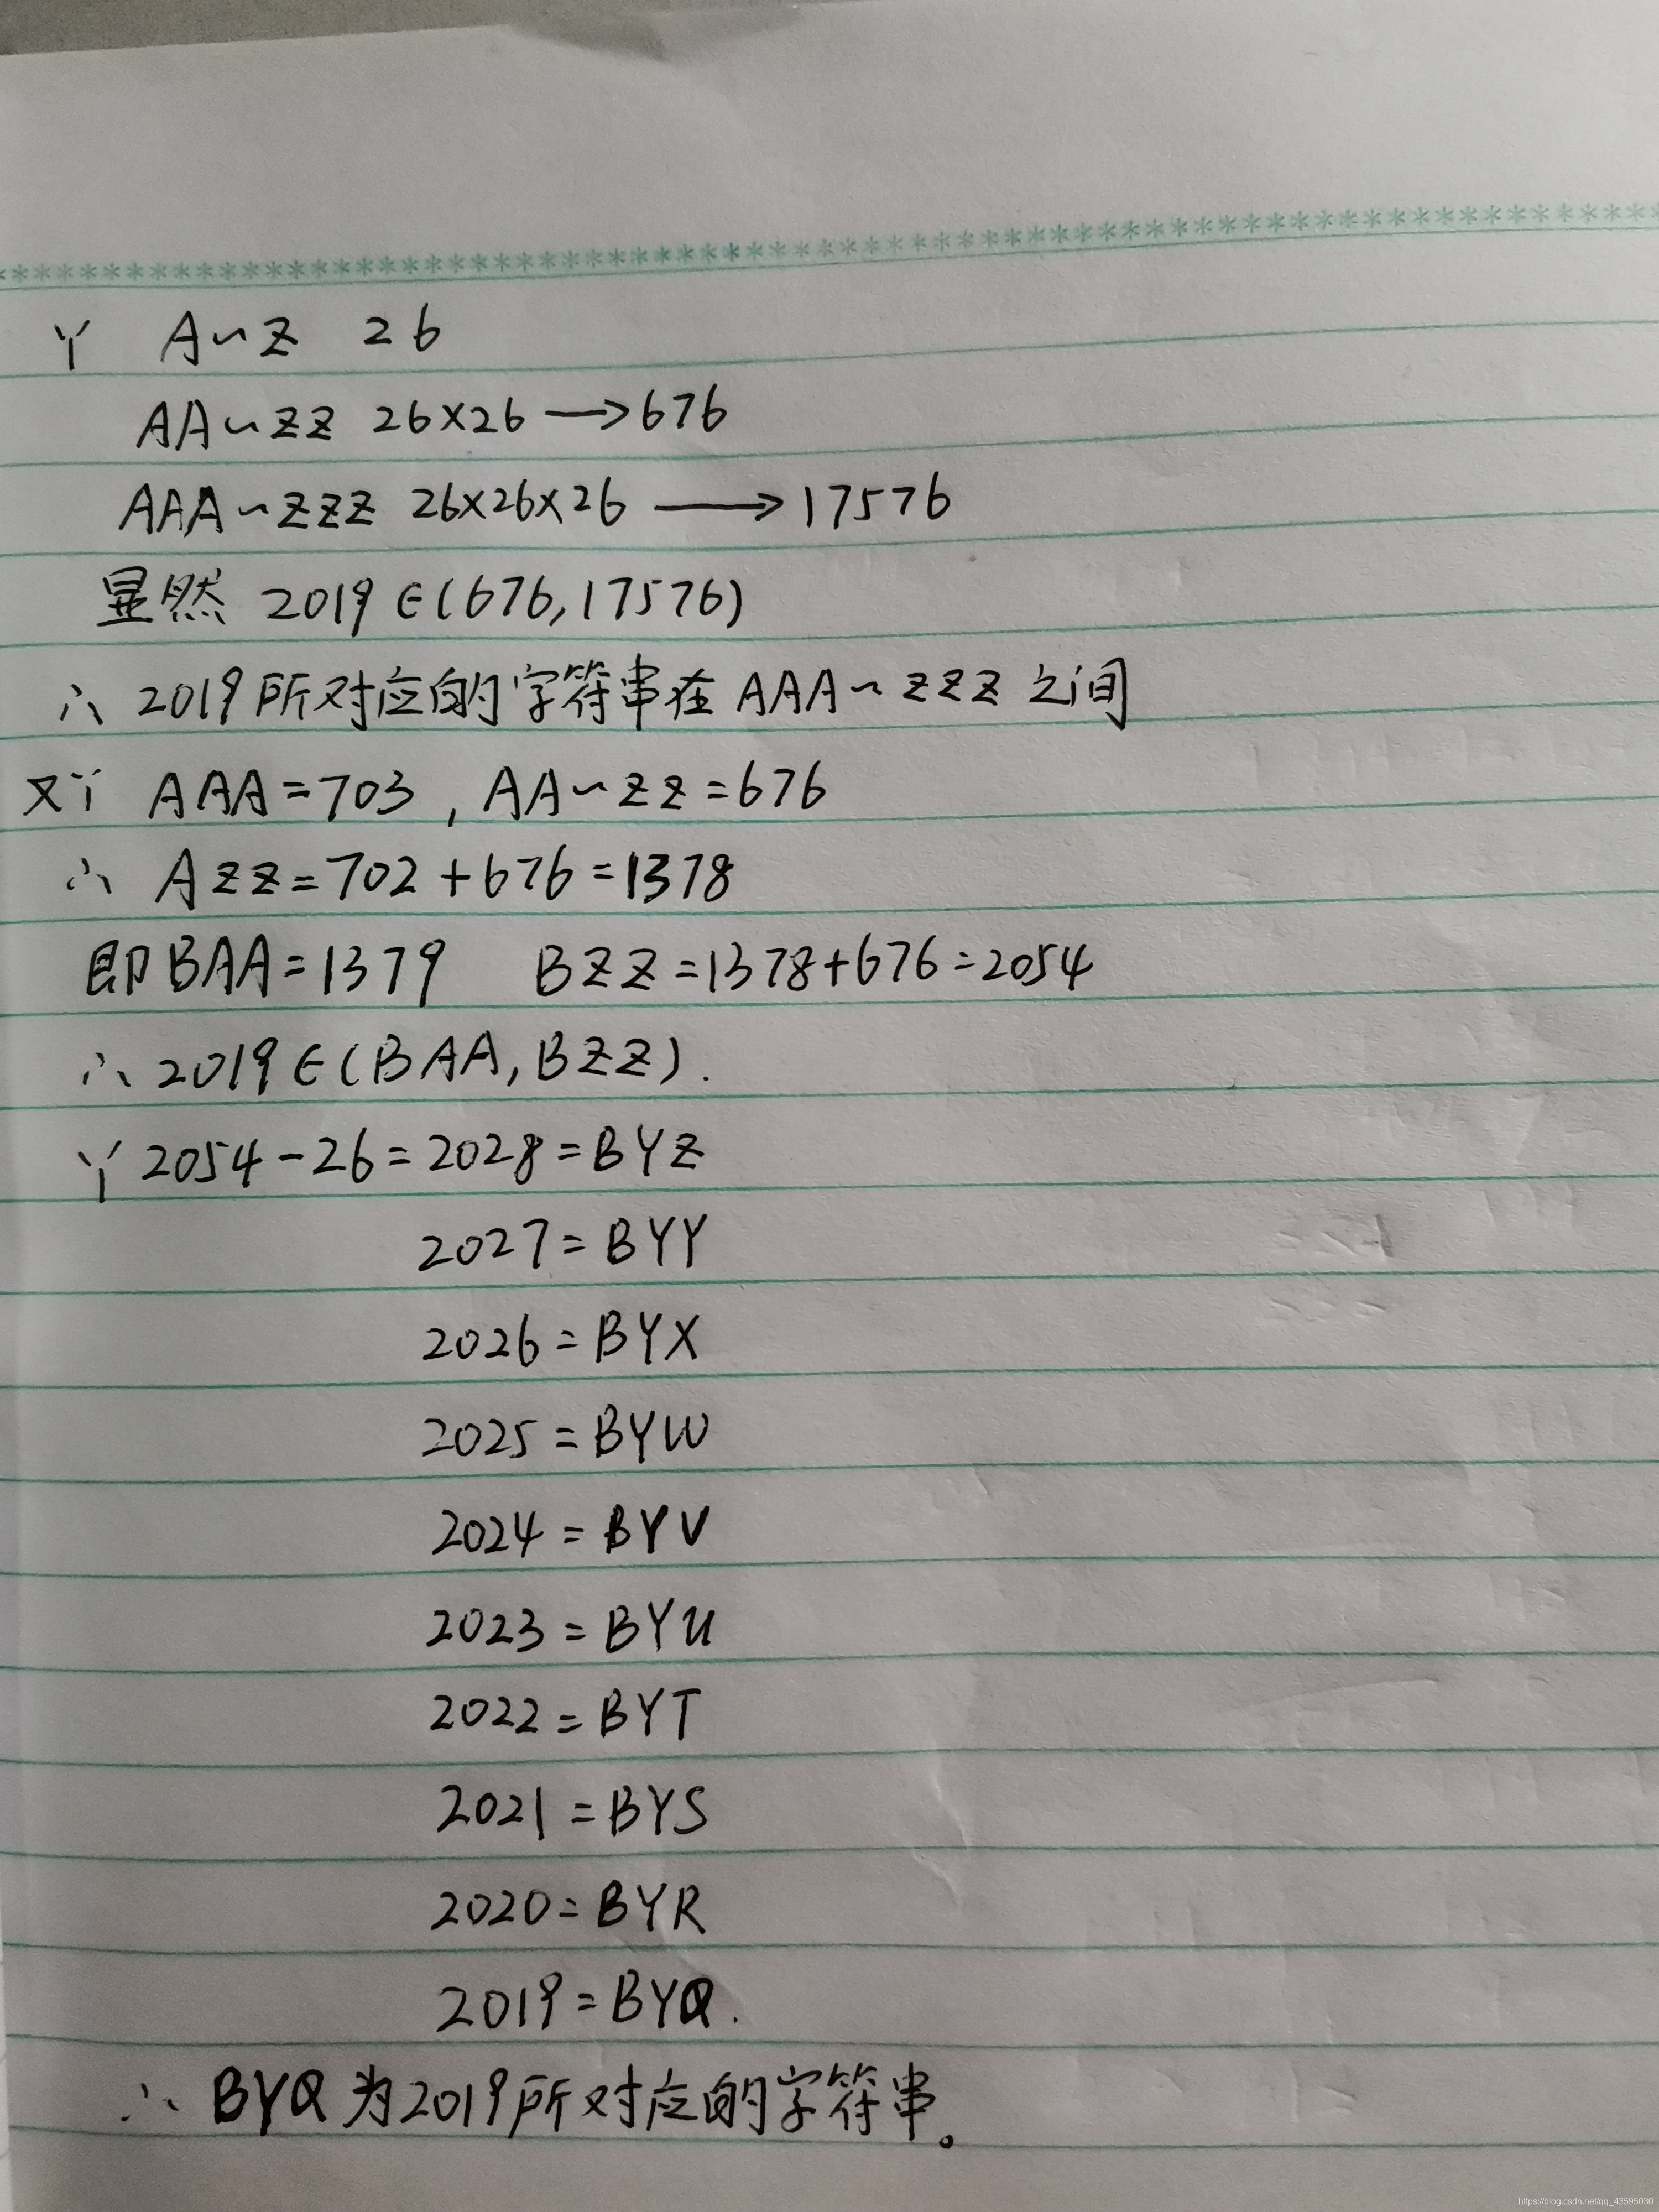 ∵ A~Z 26
AA~ZZ 26×26 ⟶676
AAA~ZZZ 26×26×26 ⟶ 17576
显然 2019∈(676,17576)
∴ 2019所对应的字符串在 AAA~ZZZ 之间
又∵ AAA=703 , AA~ZZ=676
∴ AZZ=702+676=1378
即BAA=1379 BZZ=1378+676=2054
∴ 2019∈(BAA,BZZ).
∵ 2054-26=2028=BYZ
2027=BYY
2026=BYX
2025=BYW
2024=BYV
2023=BYU
2022=BYT
2021=BYS
2020=BYR
2019=BYQ.
∴ BYQ为2019所对应的字符串。
https://blog.csdn.net/qq_43595030